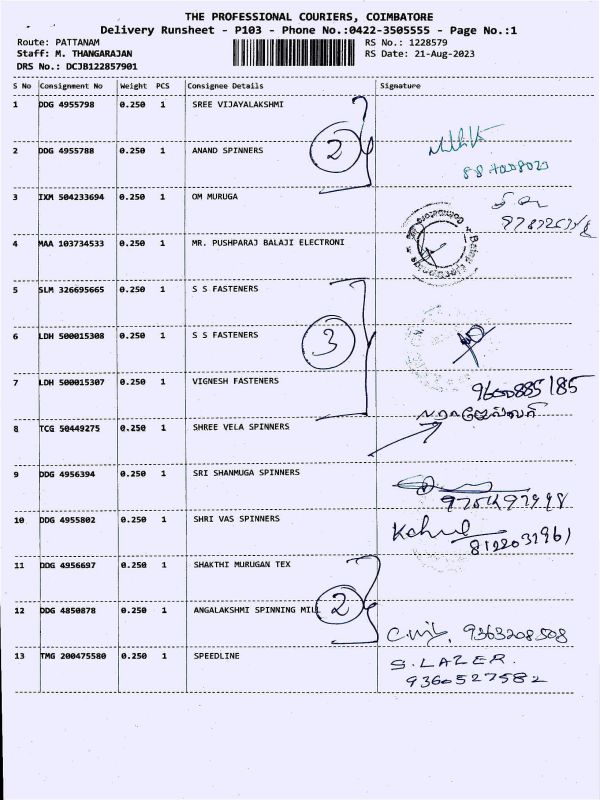 THE PROFESSIONAL COURIERS, COIMBATORE
Delivery Runsheet - P103 - Phone No.:0422-3505555 - Page No.:1
Route: PATTANAM RS No.: 1228579
Staff: M. THANGARAJAN RS Date: 21-Aug-2023
DRS No.: DCJB122857901
S No Consignment No Weight PCS Consignee Details Signature
1 DDG 4955798 0.250 1 SREE VIJAYALAKSHMI
2
2 DDG 4955788 0.250 1 ANAND SPINNERS
3 IXM 504233694 0.250 1 OM MURUGA
4 MAA 103734533 0.250 1 MR. PUSHPARAJ BALAJI ELECTRONI
5 SLM 326695665 0.250 1 S S FASTENERS
6 LDH 500015308 0.250 1 S S FASTENERS
3
7 LDH 500015307 0.250 1 VIGNESH FASTENERS
9600885185
8 TCG 50449275 0.250 1 SHREE VELA SPINNERS
9 DDG 4956394 0.250 1 SRI SHANMUGA SPINNERS
10 DDG 4955802 0.250 1 SHRI VAS SPINNERS
8122031961
11 DDG 4956697 0.250 1 SHAKTHI MURUGAN TEX
12 DDG 4850878 0.250 1 ANGALAKSHMI SPINNING MILL 2
9363208508
13 TMG 200475580 0.250 1 SPEEDLINE S. LAZER.
9360527582